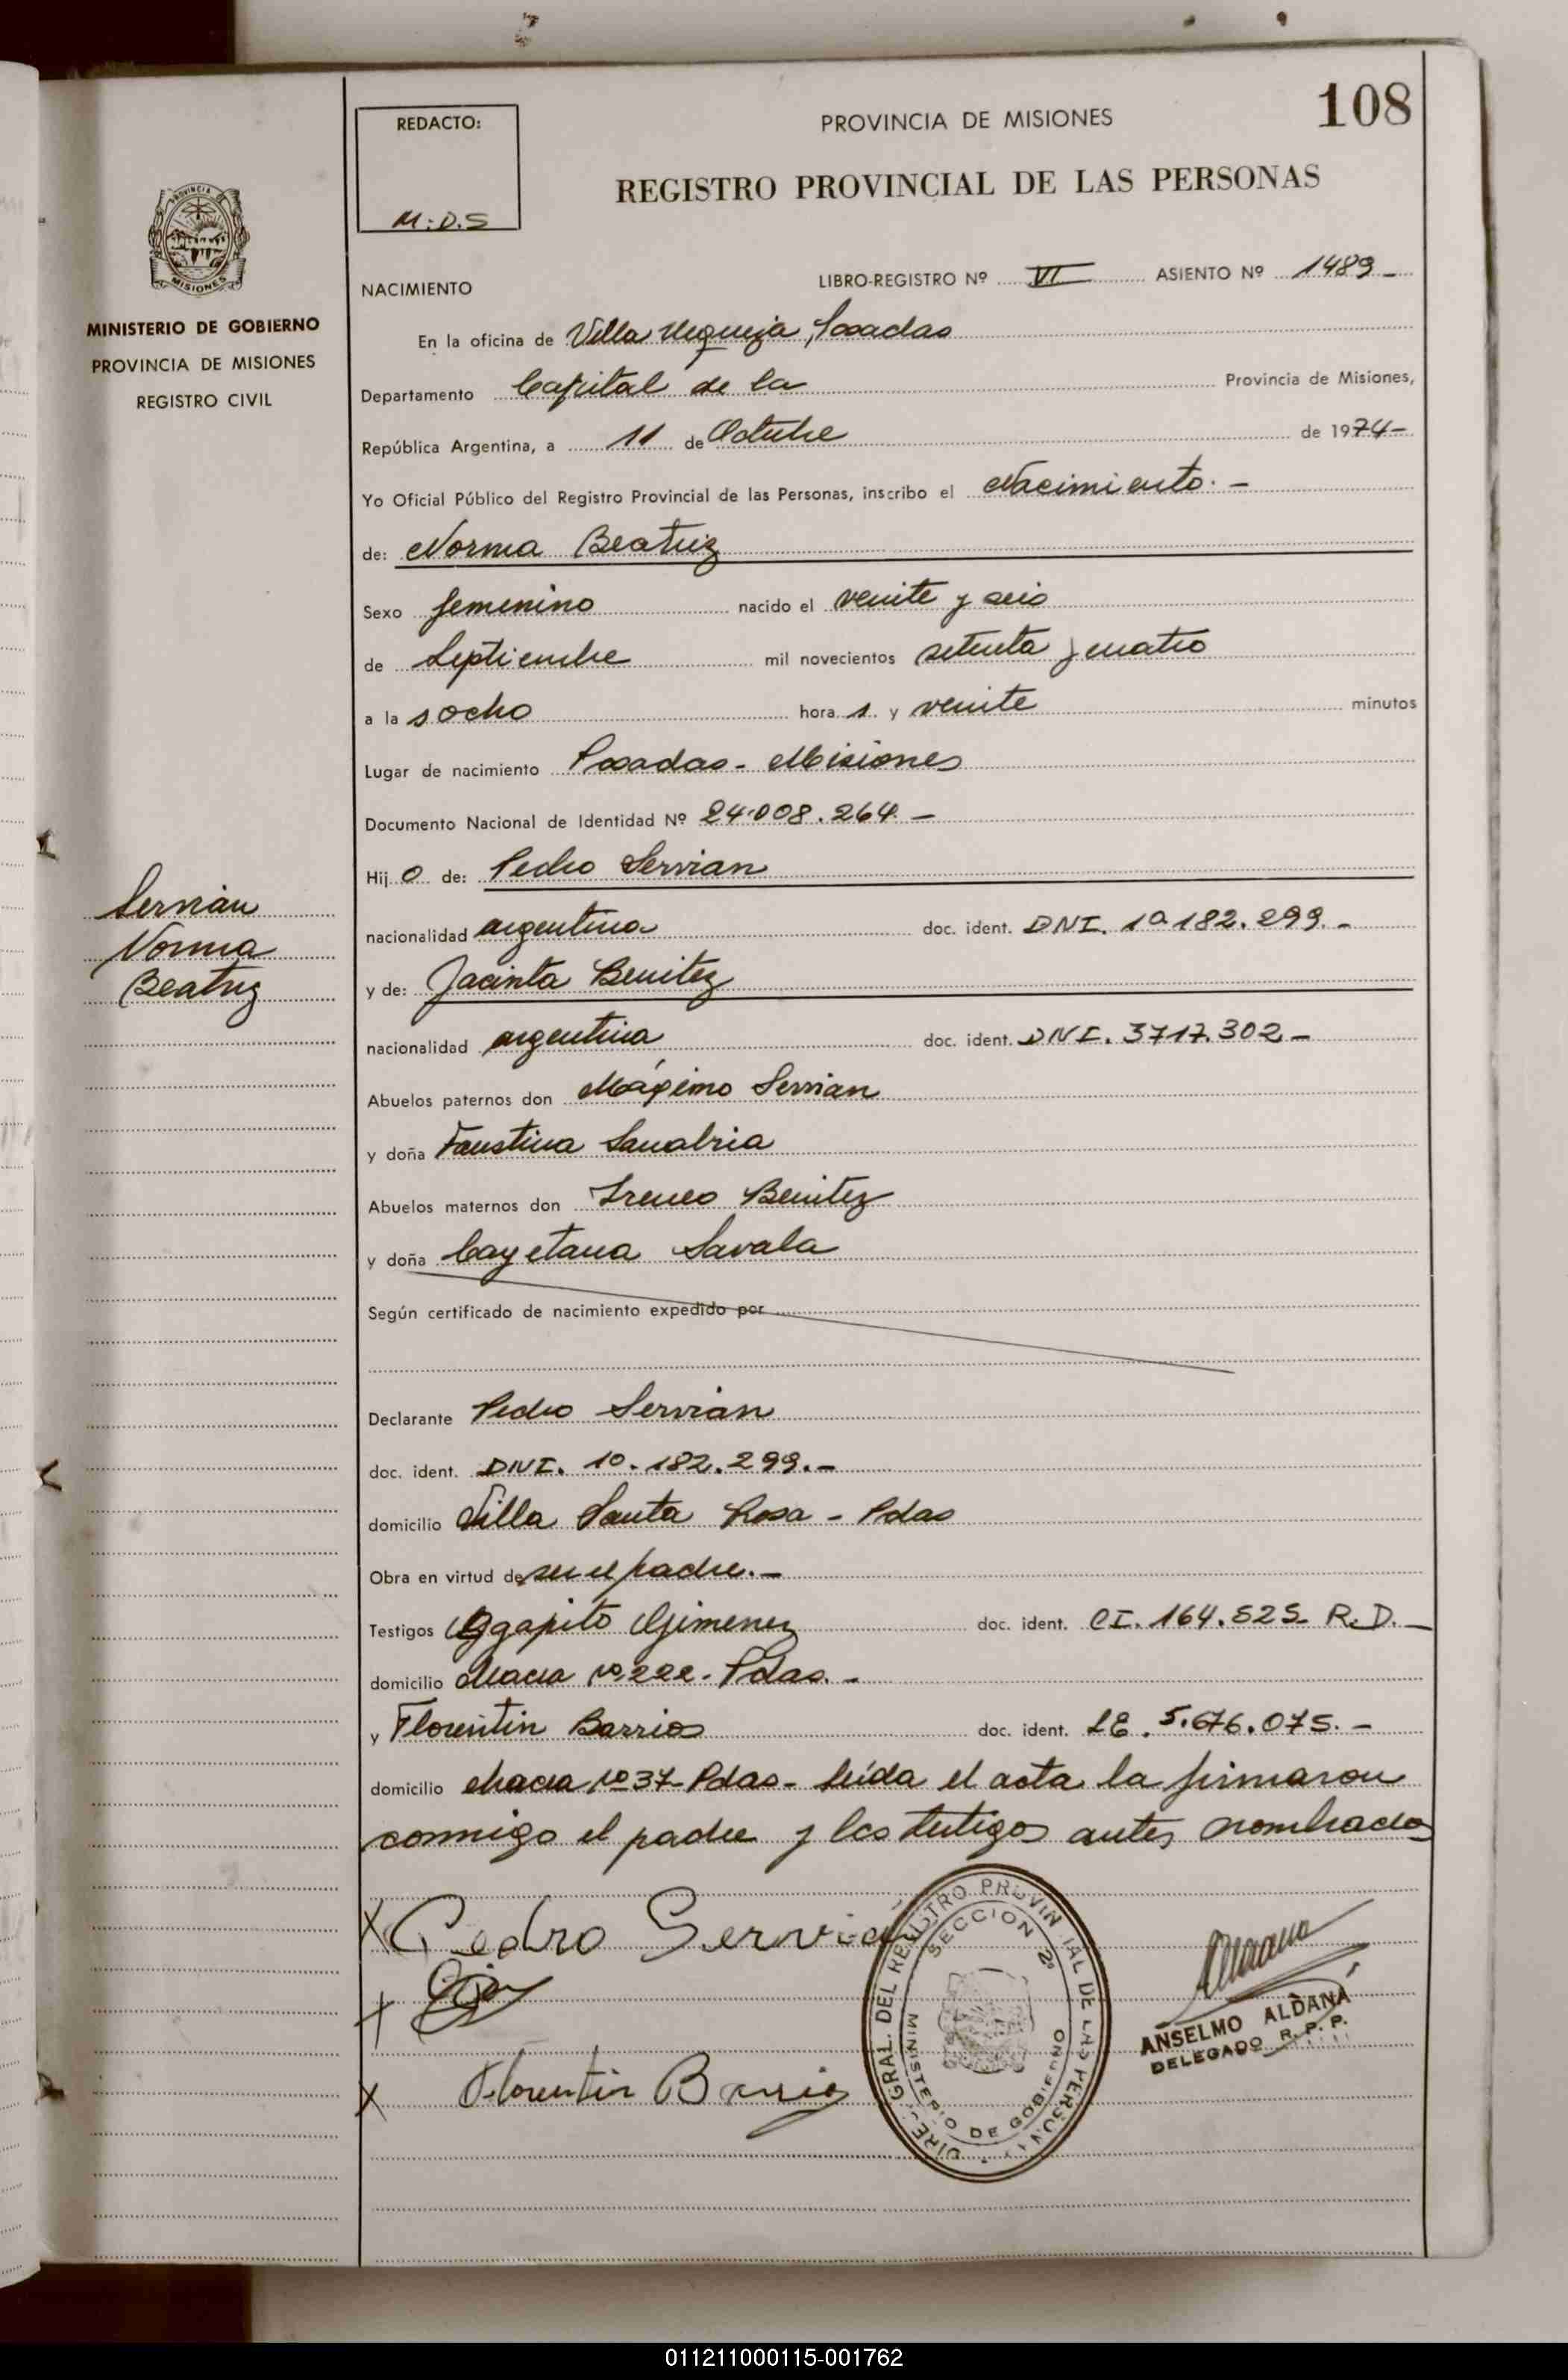 108
REDACTO:
M.D.S
PROVINCIA DE MISIONES
REGISTRO PROVINCIAL DE LAS PERSONAS
PROVINCIA
MISIONES
MINISTERIO DE GOBIERNO
PROVINCIA DE MISIONES
REGISTRO CIVIL
NACIMIENTO LIBRO-REGISTRO Nº VI ASIENTO Nº 1489-
En la oficina de Villa Urquiza, Posadas
Departamento Capital de la Provincia de Misiones,
República Argentina, a 11 de Octubre de 1974-
Yo Oficial Público del Registro Provincial de las Personas, inscribo el Nacimiento.-
de: Norma Beatriz
Sexo femenino nacido el veinte y seis
de Septiembre mil novecientos setenta y cuatro
a la s ocho hora s y veinte minutos
Lugar de nacimiento Posadas - Misiones
Documento Nacional de Identidad Nº 24.008.264.-
Hij o de: Pedro Servian
Servián
Norma
Beatriz
nacionalidad argentina doc. ident. DNI. 10.182.299.-
y de: Jacinta Benitez
nacionalidad argentina doc. ident. DNI. 3717.302-
Abuelos paternos don Máximo Servian
y doña Faustina Sanabria
Abuelos maternos don Ireneo Benitez
y doña Cayetana Savala
Según certificado de nacimiento expedido por
Declarante Pedro Servián
doc. ident. DNI. 10.182.299.-
domicilio Villa Santa Rosa - Pdas
Obra en virtud de ser el padre.-
Testigos Agapito Gimenez doc. ident. CI. 164.525 R.D.-
domicilio chacra Nº 222- Pdas.-
y Florentin Barrios doc. ident. LE. 5.676.075.-
domicilio chacra Nº 37- Pdas- leída el acta la firmaron
conmigo el padre y los testigos antes nombrados
X Pedro Servian
X
X Florentin Barrios
DIREC. GRAL. DEL REGISTRO PROVINCIAL DE LAS PERSONAS
SECCION 2º
MINISTERIO DE GOBIERNO
Aldana
ANSELMO ALDANA
DELEGADO R.P.P.
011211000115-001762